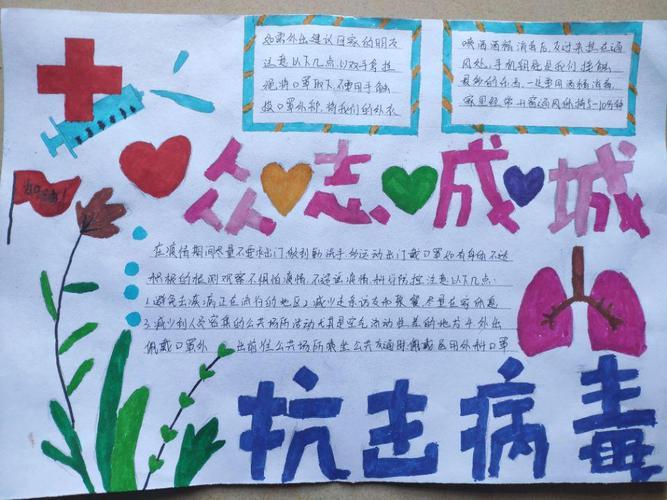 如需外出建议回家的朋友
注意以下几点:以双手身挂
绳将口罩取下,不要用手触
摸口罩外部,将我们的外衣
喷洒酒精消毒后,反过来挂在通
风处,手机钥匙是我们接触
最多的东西,一定要用酒精消毒,
开窗通风保持5-10分钟
加油!
众志成城
在疫情期间尽量不要出门,做到勤洗手多运动出门戴口罩
积极的 不惧怕疫情, 疫情,科学防控,注意以下几点:
1.避免去疾病正在流行的地区2.减少走亲访友和聚餐,尽量在家休息
3.减少到人员密集的公共场所活动尤其是空气流动性差的地方4.外出
佩戴口罩外出前往公共场所乘坐公共交通 佩戴医用外科口罩
抗击病毒